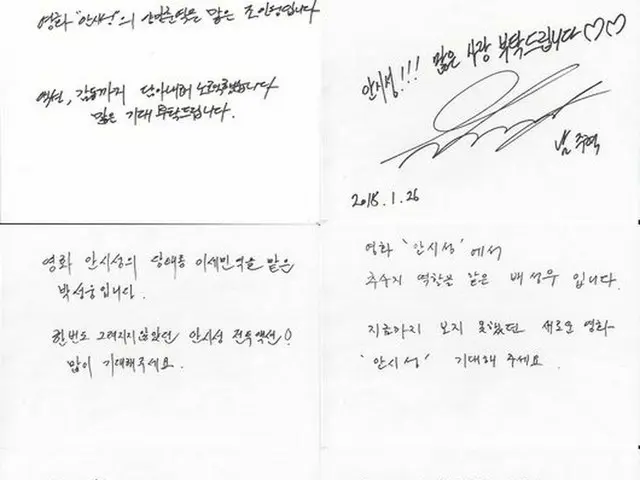 영화 "안시성"의 양만춘역을 맡은 조인성입니다
액션, 감동까지 담아내려 노력했습니다
많은 기대 부탁드립니다.
안시성!!! 많은 사랑 부탁드립니다♡♡
남주혁
2018.1.26
영화 안시성의 당태종 이세민역을 맡은
박성웅입니다.
한번도 그려지지않았던 안시성 전투액션!
많이 기대해주세요.
영화 '안시성'에서
추수지 역할을 맡은 배성우입니다.
지금까지 보지 못했던 새로운 영화
'안시성' 기대해 주세요.